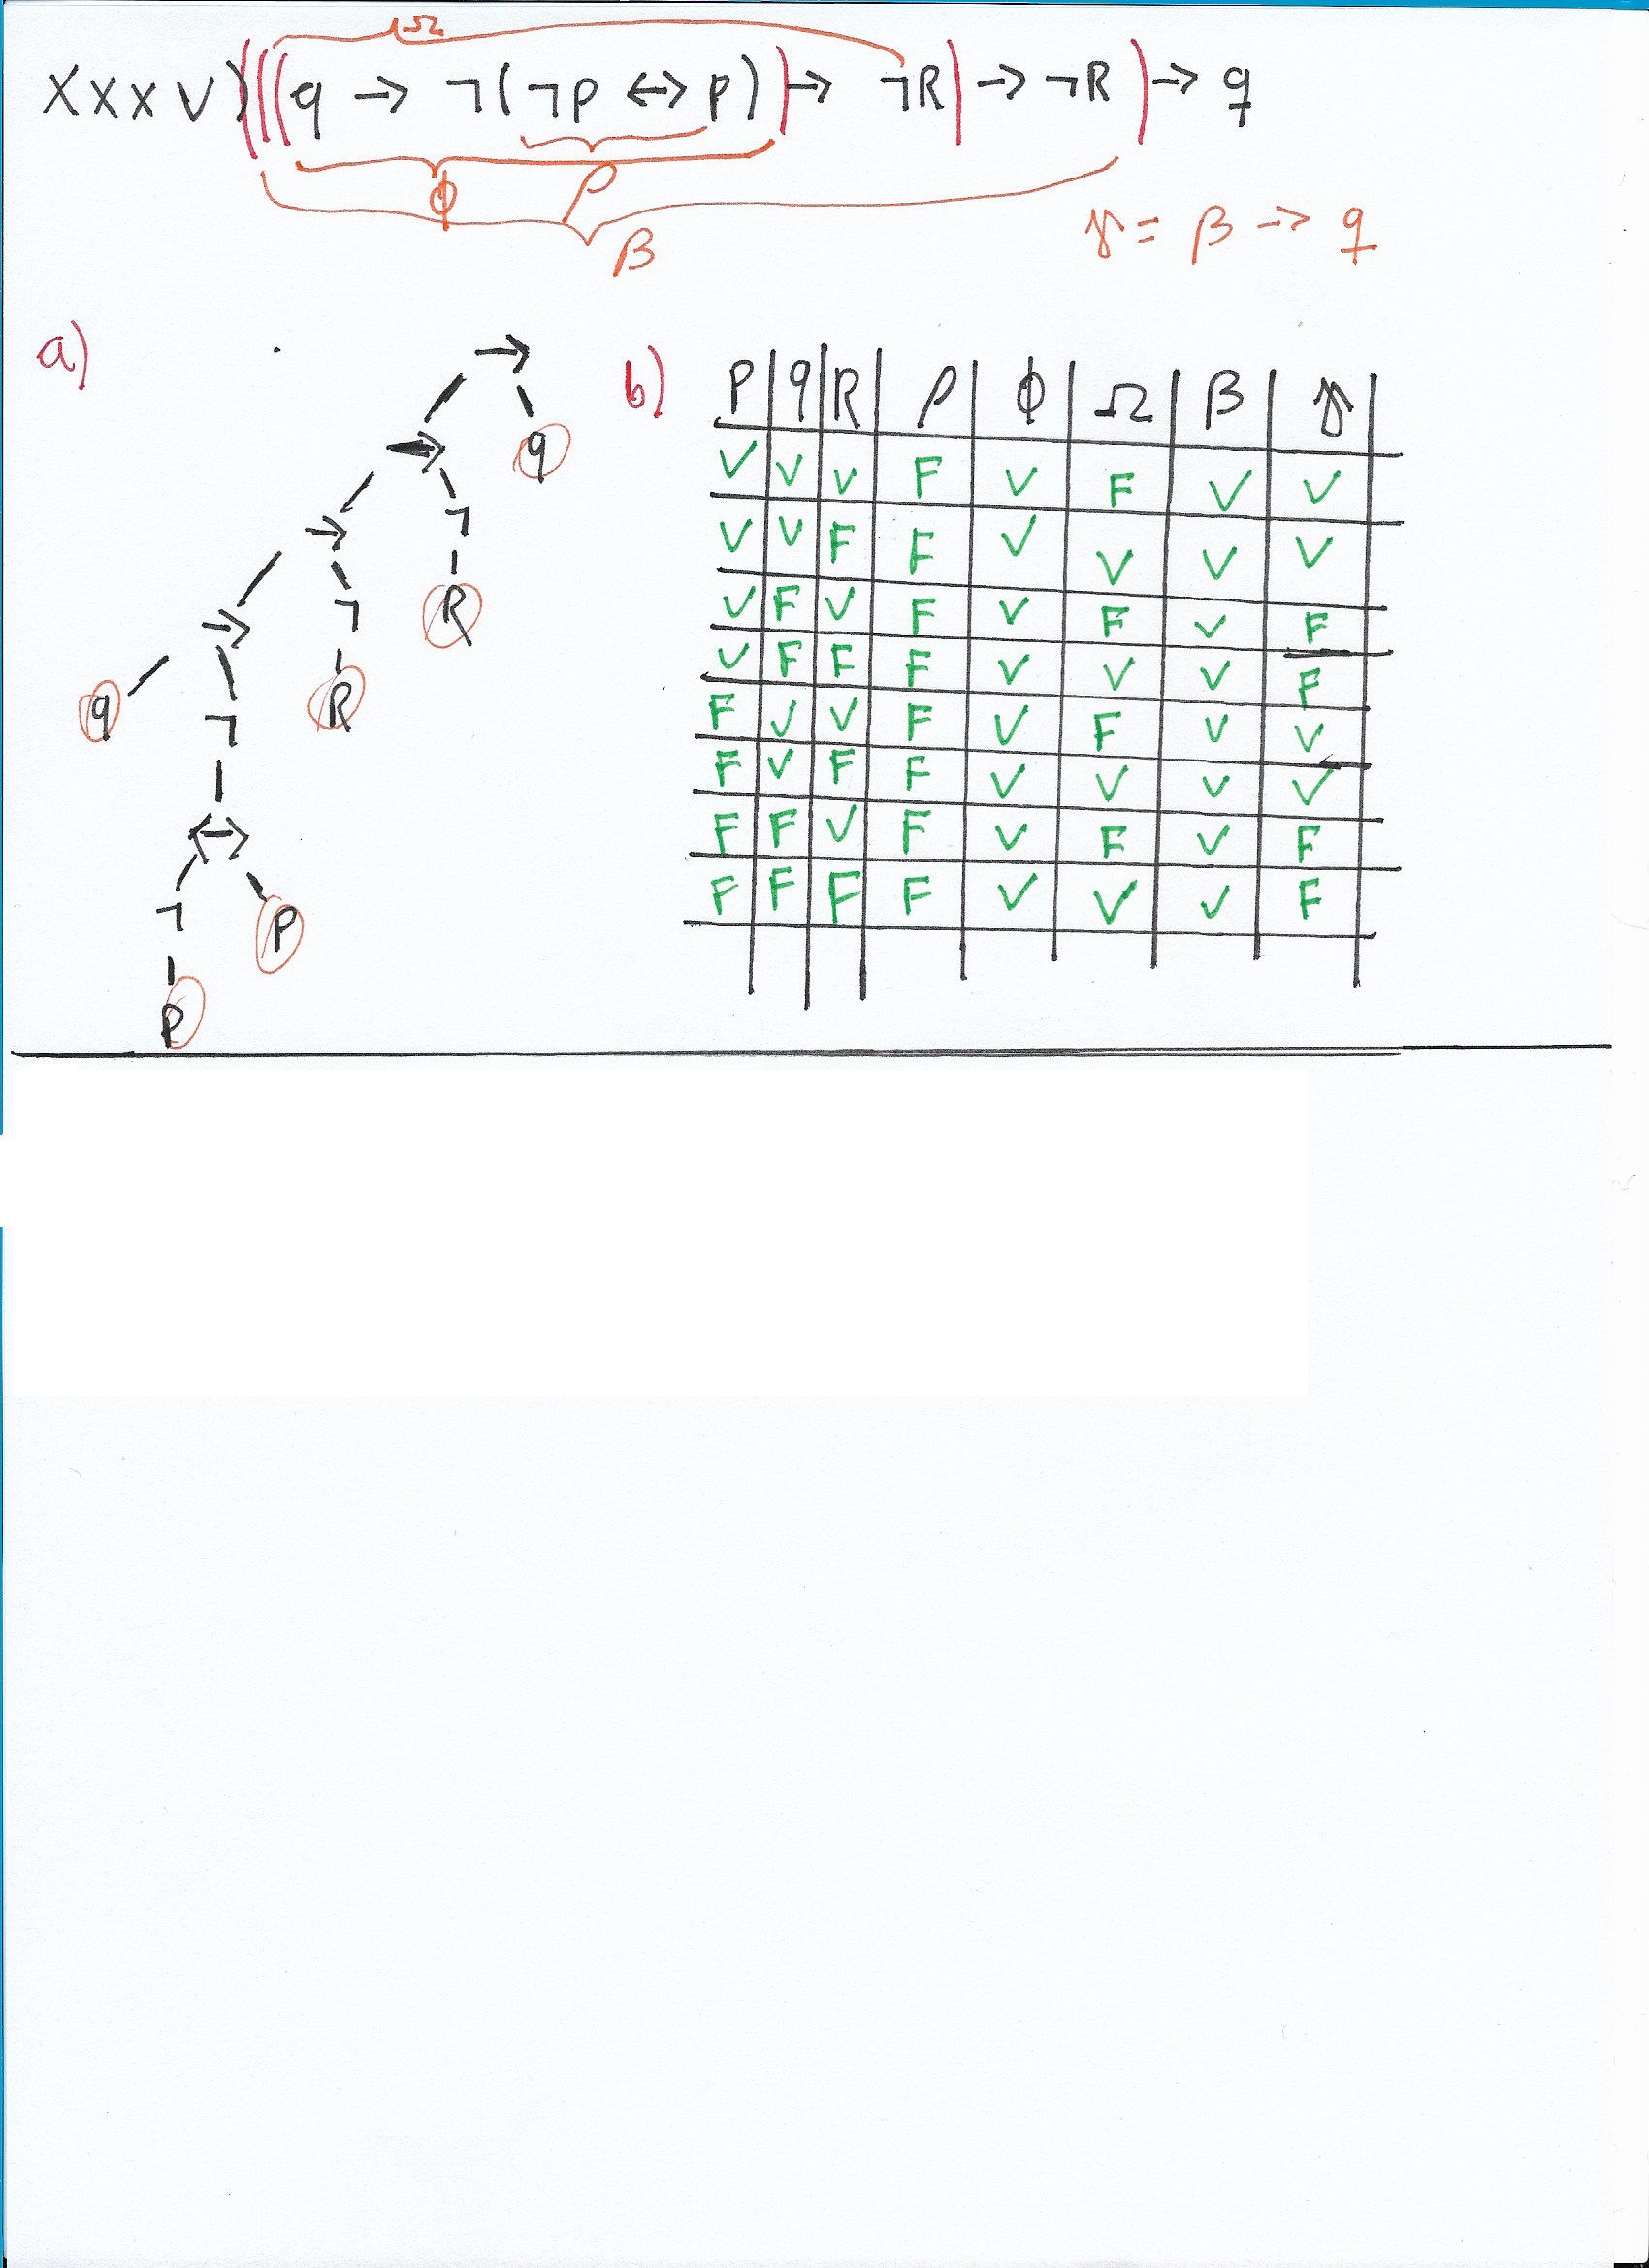 Ω
XXXV) (((q → ¬(¬P ↔ P)) → ¬R) → ¬R) → q
ϕ ρ
β
γ = β → q
a)
→
→ q
→ ¬
→ ¬ R
q ¬ R
↔
¬ P
P
b) P q R ρ ϕ Ω β γ
V V V F V F V V
V V F F V V V V
V F V F V F V F
V F F F V V V F
F V V F V F V V
F V F F V V V V
F F V F V F V F
F F F F V V V F